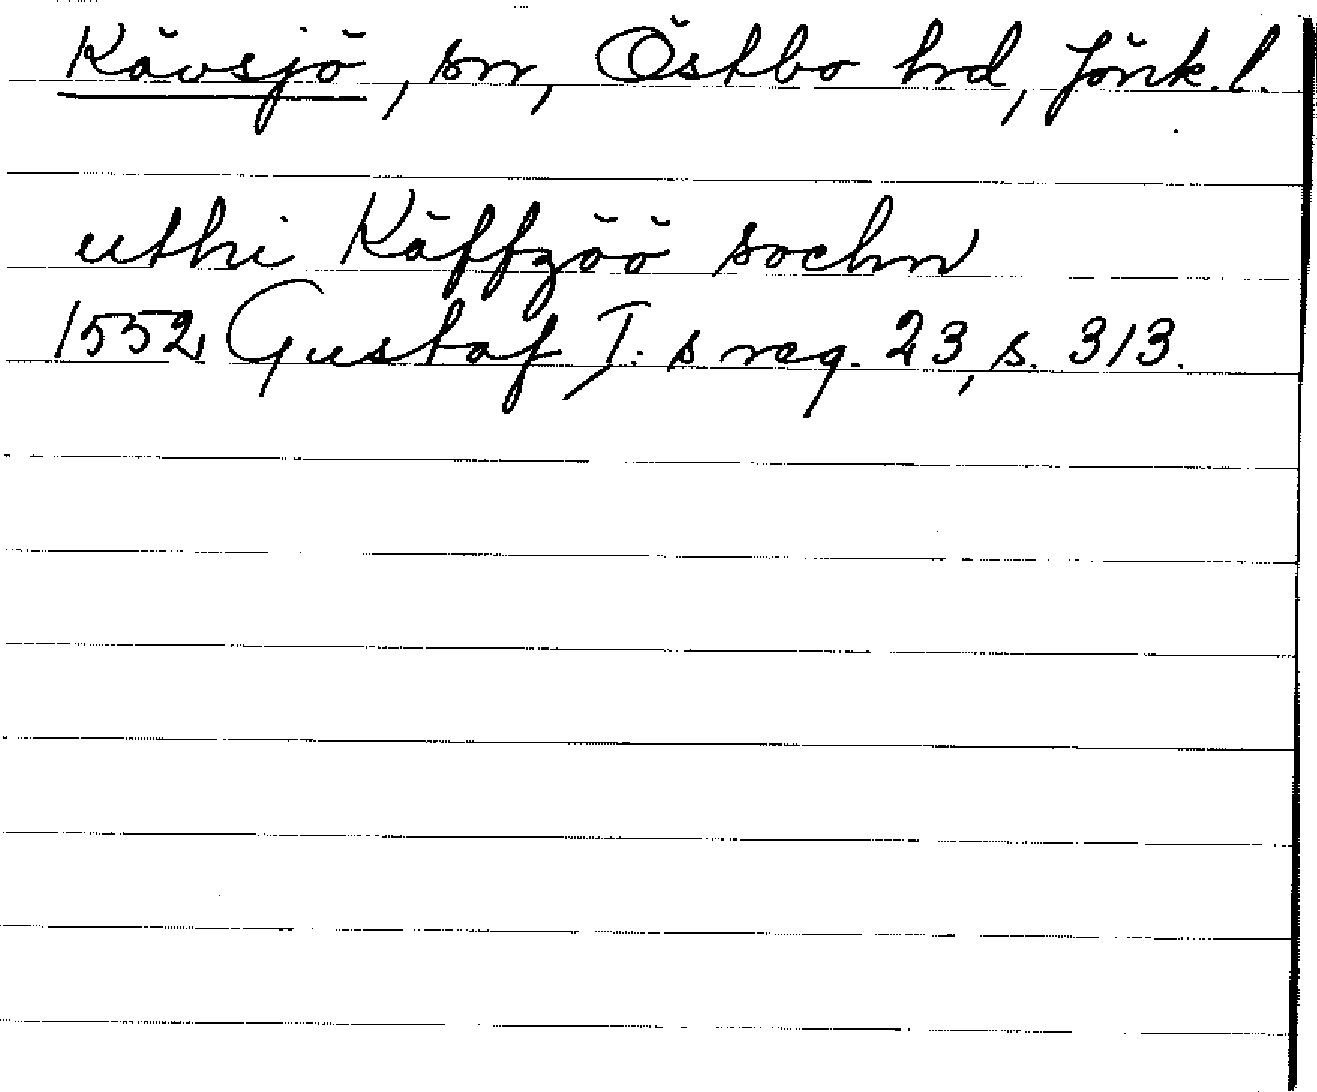 Kävsjö, sn, Östbo hrd, Jönk. l.
uthi Käffzöö sochn
1552, Gustaf I:s reg. 23, s. 313.